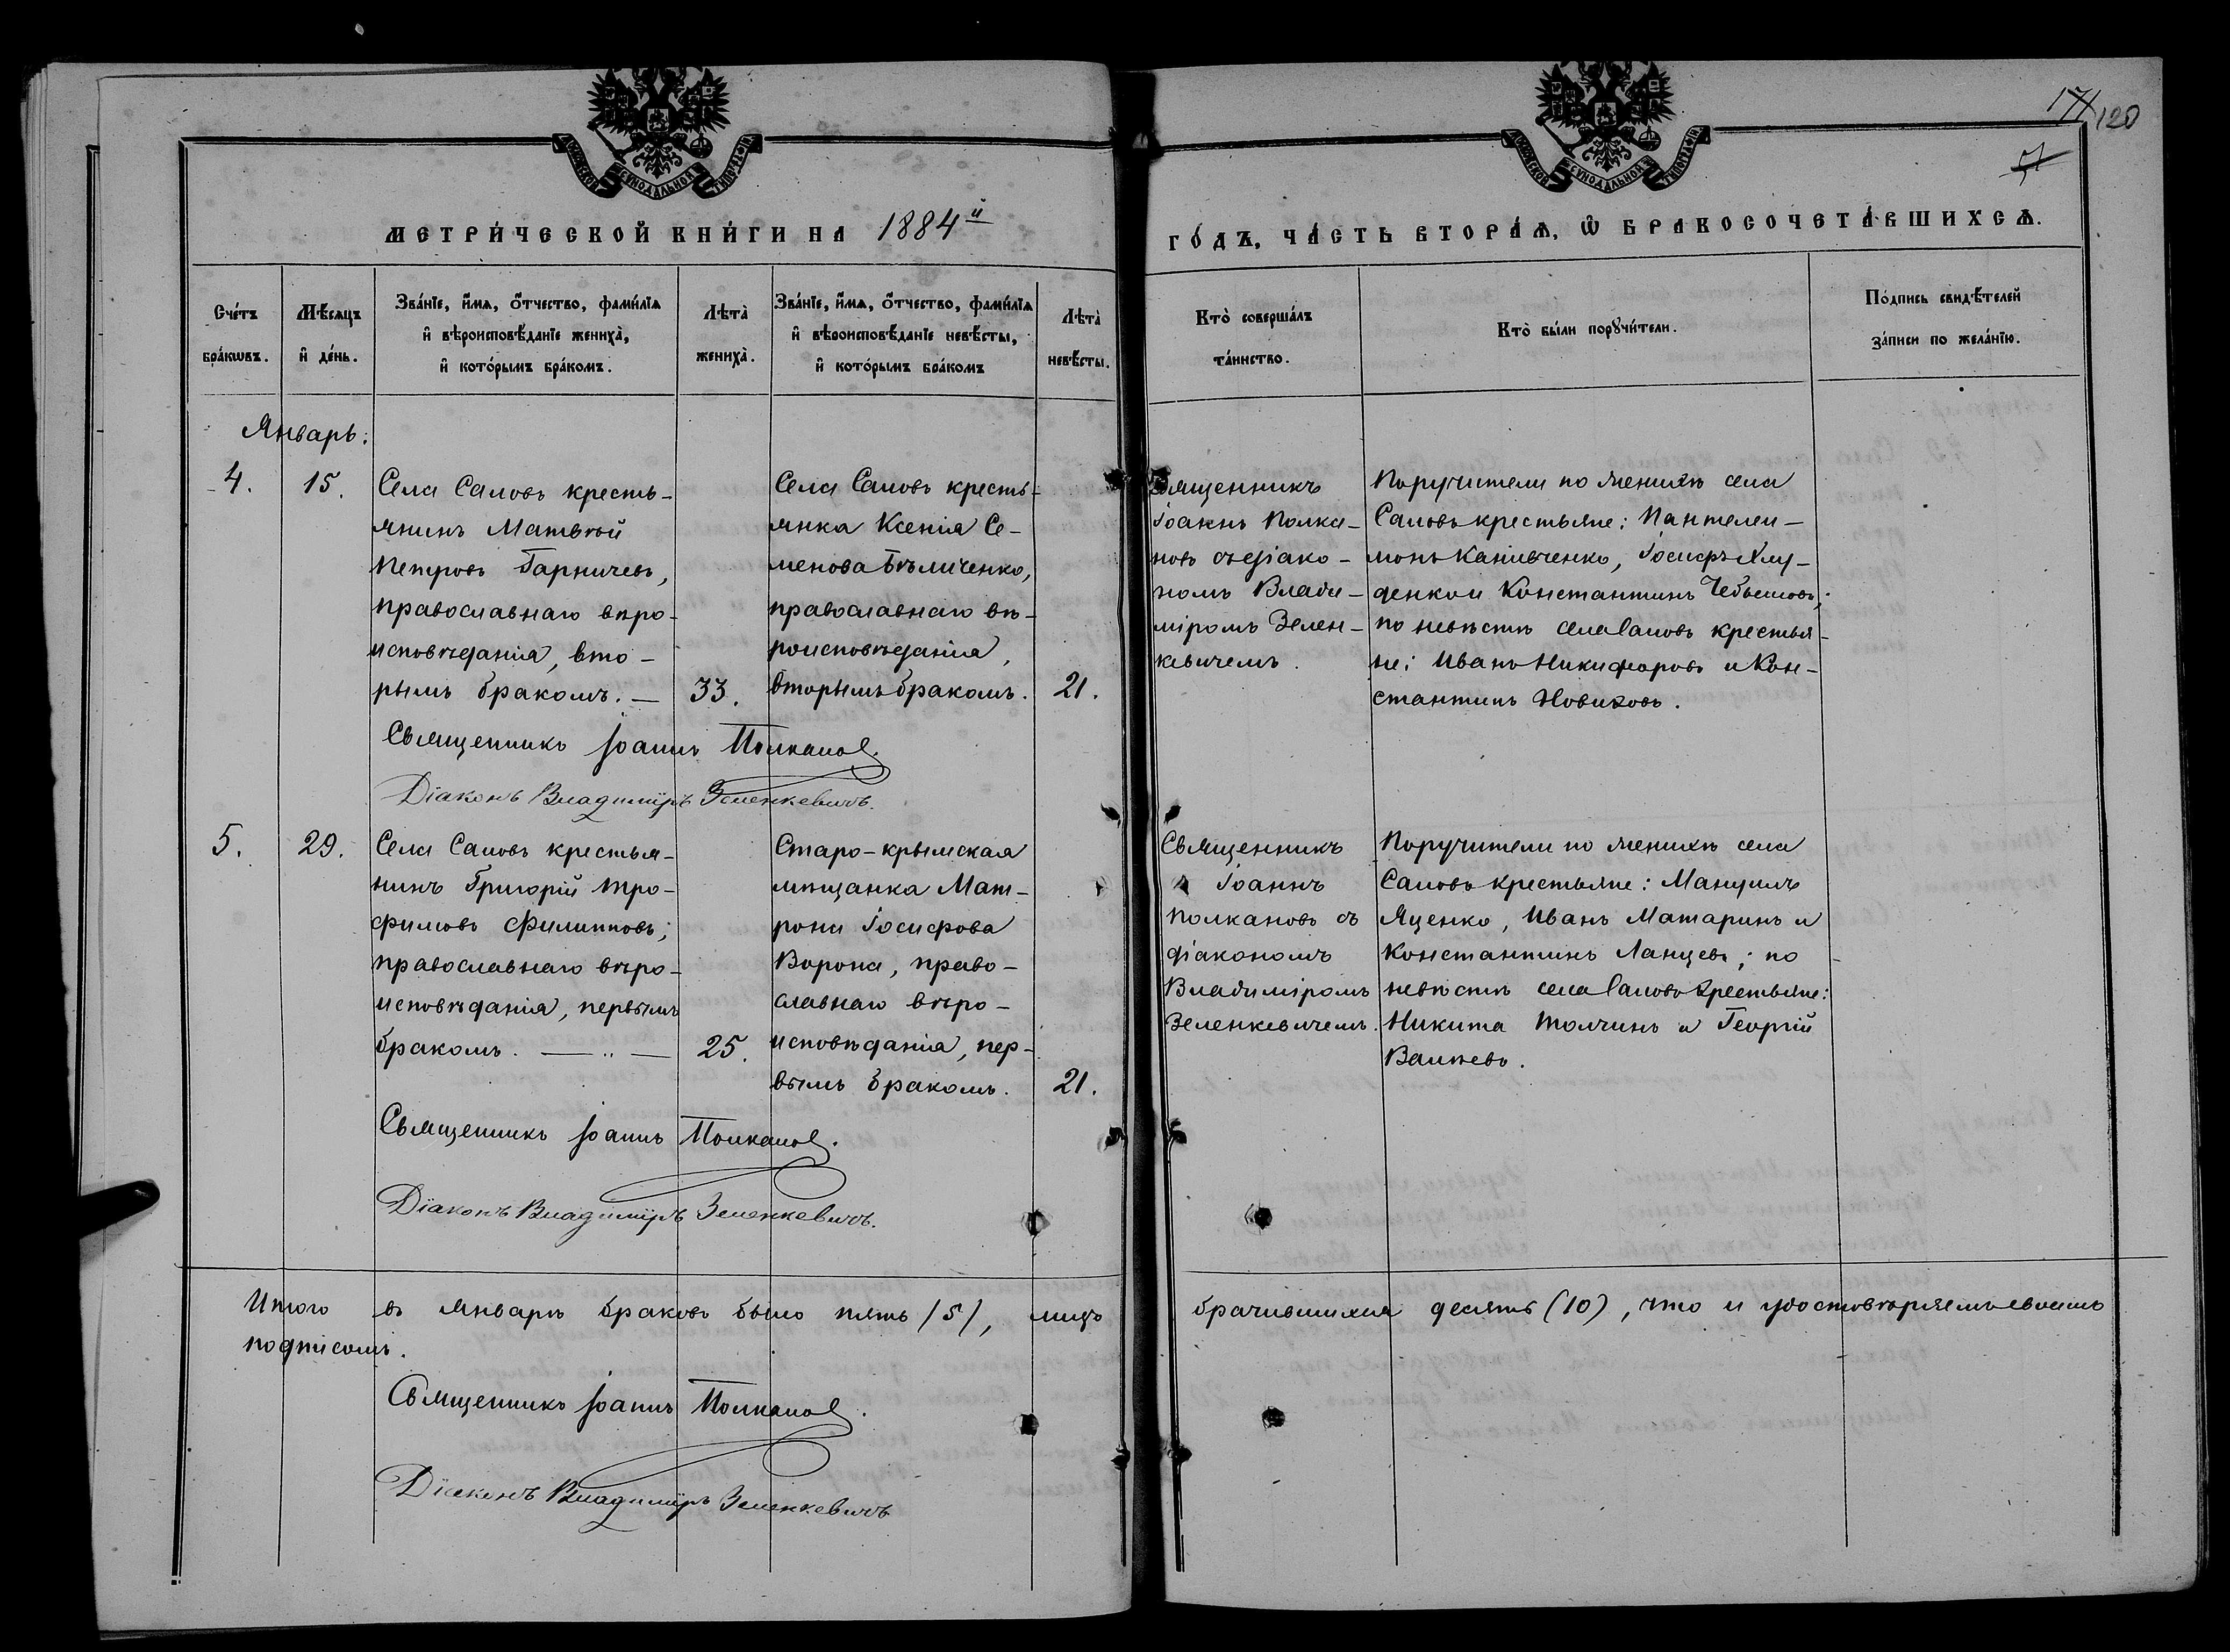 171 120
57
МОСКОВСКОЙ СУНОДАЛЬНОЙ ТИПОГРАФІИ
МОСКОВСКОЙ СУНОДАЛЬНОЙ ТИПОГРАФІИ
МЕТРИ́ЧЕСКОЙ КНИ́ГИ НА 1884й
ГО́ДЪ, ЧА́СТЬ ВТОРА́Ѧ, Ѿ БРАКОСОЧЕТА́ВШИХСѦ.
Сче́тъ
бра́кѡвъ.
Мѣ́сяцъ
и҆ де́нь.
Зва́нїе, и҆́мѧ, ѻ҆́тчество, фами́лїѧ
и҆ вѣроисповѣ́данїе жениха̀,
и҆ кото́рымъ бра́комъ.
Лѣта̀
жениха̀.
Зва́нїе, и҆́мѧ, ѻ҆́тчество, фами́лїѧ
и҆ вѣроисповѣ́данїе невѣ́сты,
и҆ кото́рымъ бра́комъ
Лѣта̀
невѣ́сты.
Кто̀ соверша́лъ
та́инство.
Кто̀ бы́ли порꙋчи́тели.
По́дпись свидѣ́телей
за́писи по жела́нїю.
Январь:
4.
15.
Села Саловъ кресть-
янинъ Матвѣй
Петровъ Гарничевъ,
православнаго вѣро-
исповѣданія, вто-
рымъ бракомъ. —
33.
Села Саловъ кресть-
янка Ксенія Се-
менова Бѣличенко,
православнаго вѣ-
роисповѣданія,
вторымъ бракомъ.
21.
Священникъ
Іоаннъ Полка-
новъ съ діако-
номъ Влади-
міромъ Зелен-
кевичемъ.
Поручители по женихѣ села
Саловъ крестьяне: Пантелей-
монъ Капивченко, Іосифъ Хлу-
денко и Константинъ Чебышовъ;
по невѣстѣ села Саловъ крестья-
не: Иванъ Никифоровъ и Кон-
стантинъ Новиковъ.
Священникъ Іоаннъ Полканов.
Діаконъ Владиміръ Зеленкевичъ.
5.
29.
Села Саловъ крестья-
нинъ Григорій Тро-
фимовъ Филипповъ;
православнаго вѣро-
исповѣданія, первымъ
бракомъ. — „ —
25.
Старо-крымская
мѣщанка Мат-
рона Іосифова
Ворона, право-
славнаго вѣро-
исповѣданія, пер-
вымъ бракомъ.
21.
Священникъ
Іоаннъ
Полкановъ съ
діакономъ
Владиміромъ
Зеленкевичемъ.
Поручители по женихѣ села
Саловъ крестьяне: Мануилъ
Яценко, Иванъ Матаринъ и
Константинъ Ланцевъ; по
невѣстѣ села Саловъ крестьяне:
Никита Толчинъ и Георгій
Валжевъ.
Священникъ Іоаннъ Полканов.
Діаконъ Владиміръ Зеленкевичъ.
Итого въ Январѣ браковъ было пять /5/, лицъ брачившихся десять (10), что и удостовѣряемъ своимъ
подписомъ.
Священникъ Іоаннъ Полканов.
Діаконъ Владиміръ Зеленкевичъ